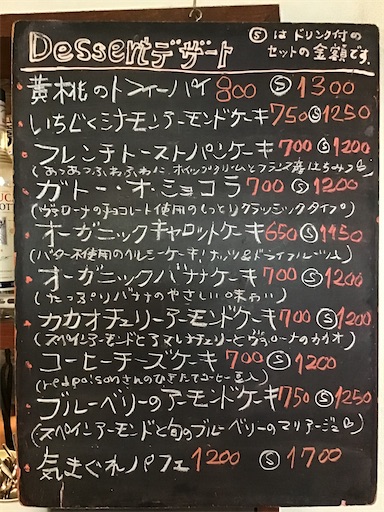 Dessert デザート
Ⓢ は ドリンク付の
セットの金額です。
黄桃のトフィーパイ 800 Ⓢ 1300
いちじくシナモンアーモンドケーキ 750 Ⓢ 1250
フレンチトーストパンケーキ 700 Ⓢ 1200
(あつあつふわふわに ホイップクリームとフランス産はちみつ)
ガトー・オ・ショコラ 700 Ⓢ 1200
(ヴァローナのチョコレート使用のしっとりクラッシックタイプ)
オーガニックキャロットケーキ 650 Ⓢ 1150
(バター不使用のヘルシーケーキ!ナッツ&ドライフルーツ入)
オーガニックバナナケーキ 700 Ⓢ 1200
(たっぷりバナナのやさしい味わい)
カカオチェリーアーモンドケーキ 700 Ⓢ 1200
(スペインアーモンドと チェリーとヴァローナのカカオ)
コーヒーチーズケーキ 700 Ⓢ 1200
(redpoisonさんのひきたてコーヒー豆入)
ブルーベリーのアーモンドケーキ 750 Ⓢ 1250
(スペインアーモンドと旬のブルーベリーのマリアージュ)
気まぐれパフェ 1200 Ⓢ 1700